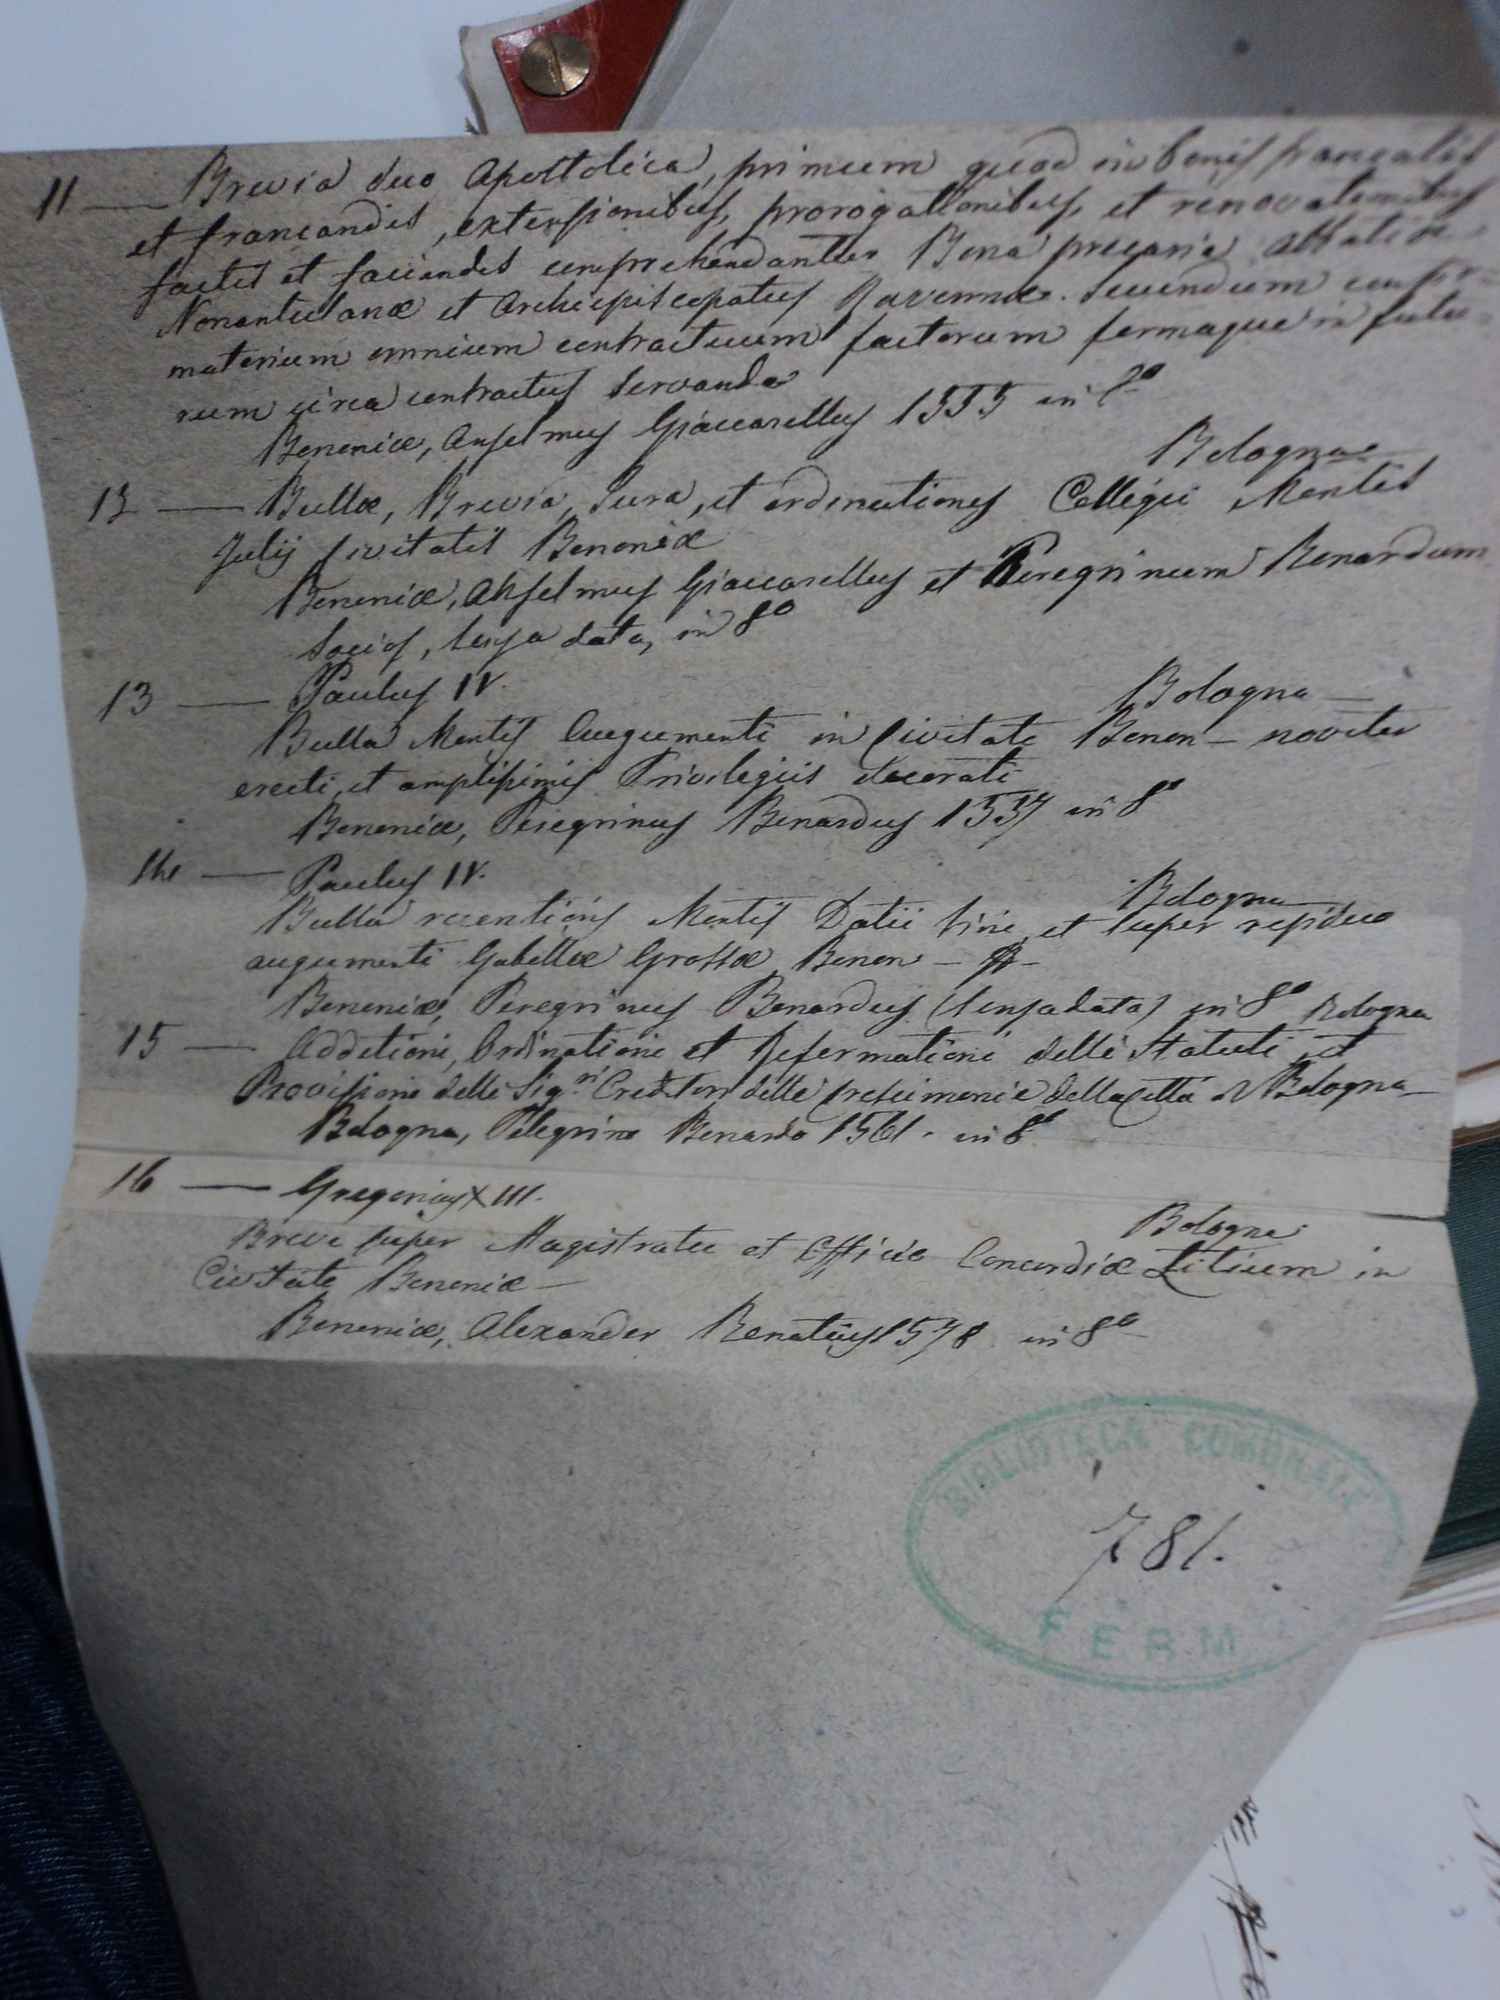 11 — Brevia duo Apostolica, primum quod in bonis francatis
et francandis, extensionibus, prorogationibus, et renovationibus
factis et faciendis comprehendantur Bona precaria Abbatiæ
Nonantulanæ et Archiepiscopatus Ravennæ. Secundum confir-
matorium omnium contractuum factorum formaque in futu-
rum circa contractus servanda
Bononiæ, Anselmus Giaccarellus 1555 in 8º
Bologna
12 — Bullæ, Brevia, Jura, et ordinationes Collegii Montis
Julij Civitatis Bononiæ
Bononiæ, Anselmus Giaccarellus et Peregrinum Bonardum
Socios, senza data, in 8º
13 — Paulus IV.
Bologna —
Bulla Montis Augumenti in Civitate Bonon — noviter
erecti, et amplissimis Privilegiis decorati
Bononiæ, Peregrinus Bonardus 1557 in 8º
14 — Paulus IV.
Bologna
Bulla erectionis Montis Datii Vini, et super residuo
augumenti Gabellæ Grossæ Bonon —
Bononiæ, Peregrinus Bonardus (senza data) in 8º Bologna
15 — Additioni, Ordinationi et Reformationi delli Statuti et
Provisione delli Sig.ri Creditori delle Presidentie della Città di Bologna —
Bologna, Pelegrino Bonardo 1561. in 8º
16 — Gregorius XIII.
Bologna
Breve super Magistratu et Officio Concordiæ Litium in
Civitate Bononiæ —
Bononiæ, Alexander Benatius 1578 in 8º
BIBLIOTECA COMUNALE
781.
FERM